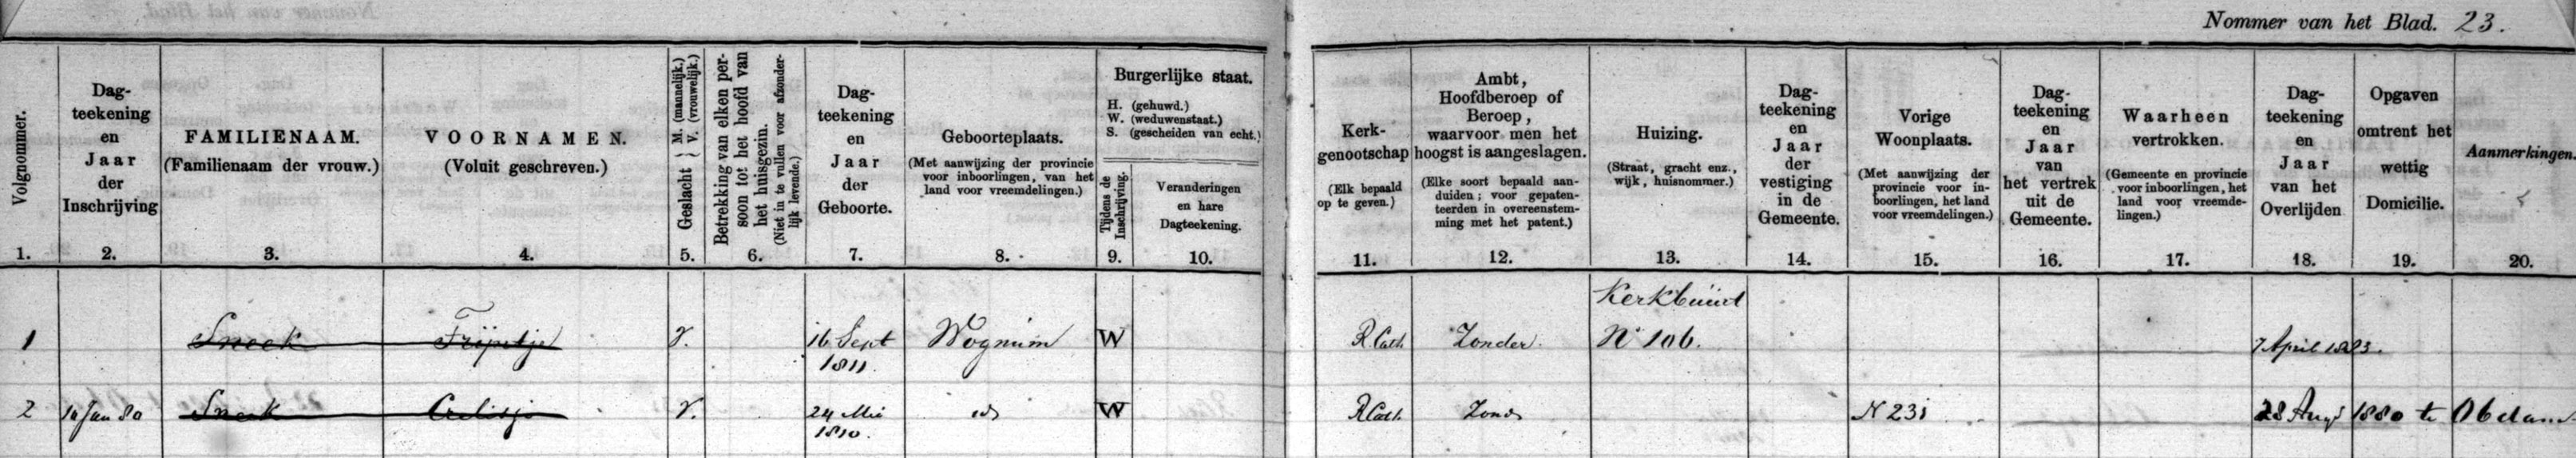 Nommer van het Blad. 23.
Volgnommer.
Dag-
teekening
en
Jaar
der
Inschrijving
FAMILIENAAM.
(Familienaam der vrouw.)
VOORNAMEN.
(Voluit geschreven.)
Geslacht { M. (mannelijk.)
V. (vrouwelijk.)
Betrekking van elken per-
soon tot het hoofd van
het huisgezin.
(Niet in te vullen voor afzonder-
lijk levende.)
Dag-
teekening
en
Jaar
der
Geboorte.
Geboorteplaats.
(Met aanwijzing der provincie
voor inboorlingen, van het
land voor vreemdelingen.)
Burgerlijke staat.
H. (gehuwd.)
W. (weduwenstaat.)
S. (gescheiden van echt.)
Tijdens de
Inschrijving.
Veranderingen
en hare
Dagteekening.
Kerk-
genootschap
(Elk bepaald
op te geven.)
Ambt,
Hoofdberoep of
Beroep,
waarvoor men het
hoogst is aangeslagen.
(Elke soort bepaald aan-
duiden; voor gepaten-
teerden in overeenstem-
ming met het patent.)
Huizing.
(Straat, gracht enz.,
wijk, huisnommer.)
Dag-
teekening
en
Jaar
der
vestiging
in de
Gemeente.
Vorige
Woonplaats.
(Met aanwijzing der
provincie voor in-
boorlingen, het land
voor vreemdelingen.)
Dag-
teekening
en
Jaar
van
het vertrek
uit de
Gemeente.
Waarheen
vertrokken.
(Gemeente en provincie
voor inboorlingen, het
land voor vreemde-
lingen.)
Dag-
teekening
en
Jaar
van het
Overlijden
Opgaven
omtrent het
wettig
Domicilie.
Aanmerkingen.
1. 2. 3. 4. 5. 6. 7. 8. 9. 10. 11. 12. 13. 14. 15. 16. 17. 18. 19. 20.
Kerkbuurt
1 Sneek Trijntje V. 16 Sept Wognum W R Cath. Zonder. N° 106. 7 April 1883.
1811.
2 14 Jan 80 Sneek V. 24 Mei id W R Cath. Zond N 231 28 Augs 1880 te Obdam
1810.